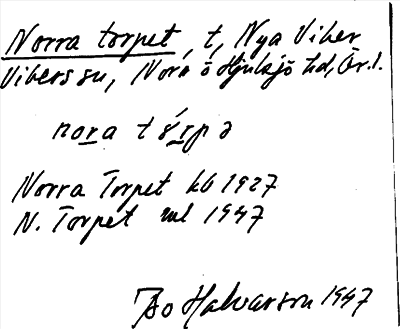 Norra torpet, t, Nya Viker
Vikers sn, Nora o Hjulsjö hd, Ör.l.
nora tɷ́rpə
Norra Torpet kb 1927
N. Torpet ml 1947
Bo Halvarson 1947